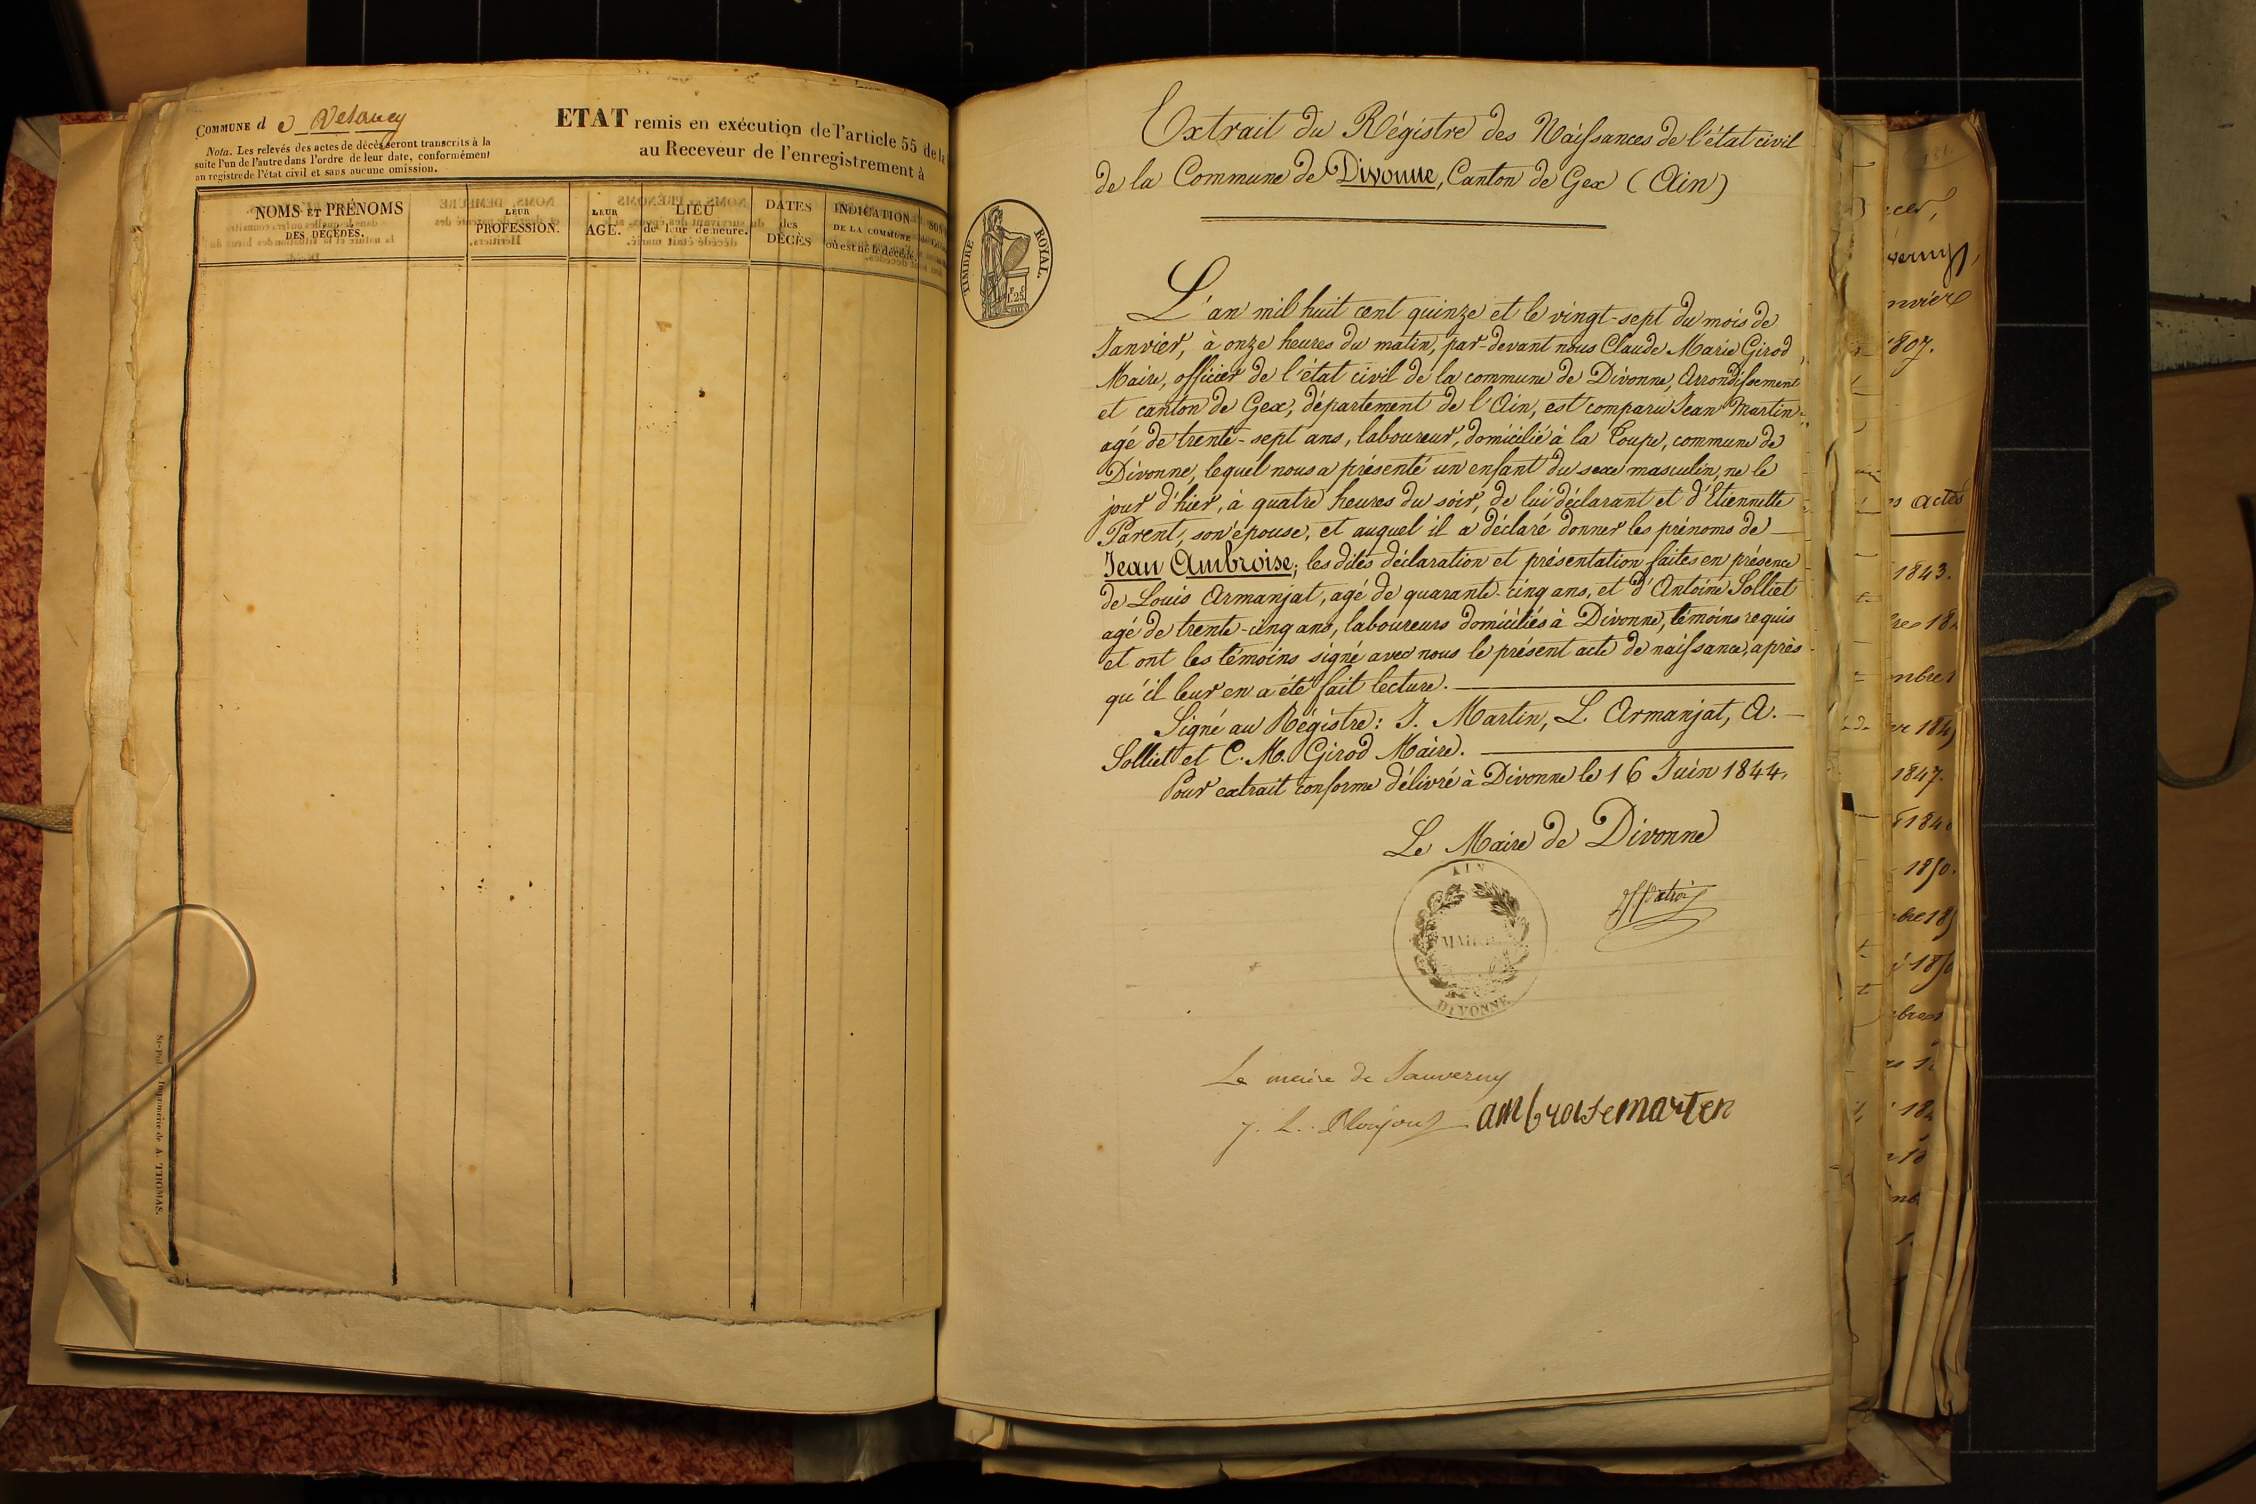 COMMUNE de Vesancy
Nota. Les relevés des actes de décès seront transcrits à la
suite l'un de l'autre dans l'ordre de leur date, conformément
au registre de l'état civil et sans aucune omission.
ETAT remis en exécution de l'article 55 de la
au Receveur de l'enregistrement à
NOMS ET PRÉNOMS
DES DÉCÉDÉS.
LEUR
PROFESSION.
LEUR
AGE.
LIEU
de leur demeure.
DATES
des
DÉCÈS
INDICATION
DE LA COMMUNE
où est né le décédé.
Imprimerie de A. THOMAS.
Extrait du Régistre des Naissances de l'état civil
de la Commune de Divonne, Canton de Gex (Ain)
TIMBRE ROYAL.
L'an mil huit cent quinze et le vingt-sept du mois de
Janvier, à onze heures du matin, par-devant nous Claude Marie Girod
Maire, officier de l'état civil de la commune de Divonne, Arrondissement
et canton de Gex, département de l'Ain, est comparu Jean Martin
agé de trente-sept ans, laboureur, domicilié à la Coupe, commune de
Divonne, lequel nous a présenté un enfant du sexe masculin, né le
jour d'hier, à quatre heures du soir, de lui déclarant et d'Etiennette
Parent, son épouse, et auquel il a déclaré donner les prénoms de
Jean Ambroise; les dites déclaration et présentation faites en présence
de Louis Armanjat, agé de quarante-cinq ans, et d'Antoine Solliet
agé de trente-cinq ans, laboureurs domiciliés à Divonne, témoins requis
et ont les témoins signé avec nous le présent acte de naissance, après
qu'il leur en a été fait lecture.
Signé au Régistre: J. Martin, L. Armanjat, A.
Solliet et C. M. Girod Maire.
Pour extrait conforme délivré à Divonne le 16 Juin 1844.
Le Maire de Divonne
AIN
MAIRIE
DIVONNE
Le maire de Sauverny
ambroise marten
1807.
actes
1843.
1847.
1850.